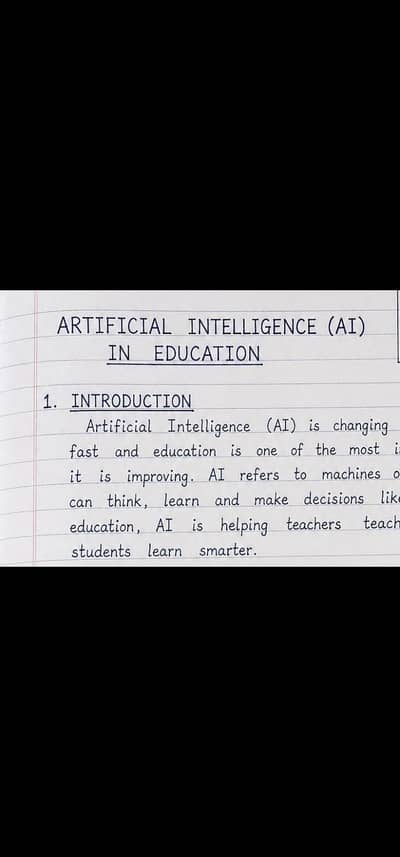 ARTIFICIAL INTELLIGENCE (AI)
IN EDUCATION
1. INTRODUCTION
Artificial Intelligence (AI) is changing
fast and education is one of the most
it is improving. AI refers to machines
can think, learn and make decisions
education, AI is helping teachers teach
students learn smarter.